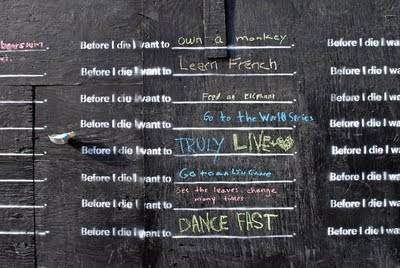 Before I die I want to own a monkey. Before I die I w
Before I die I want to Learn French Before I die I w
Before I die I want to Feed an Elephant Before I die I w
Before I die I want to Go to the World Series Before I die I w
Before I die I want to TRULY LIVE Before I die I w
Before I die I want to Go to an Before I die I w
Before I die I want to See the leaves change many times Before I die I w
Before I die I want to DANCE FAST Before I die I w